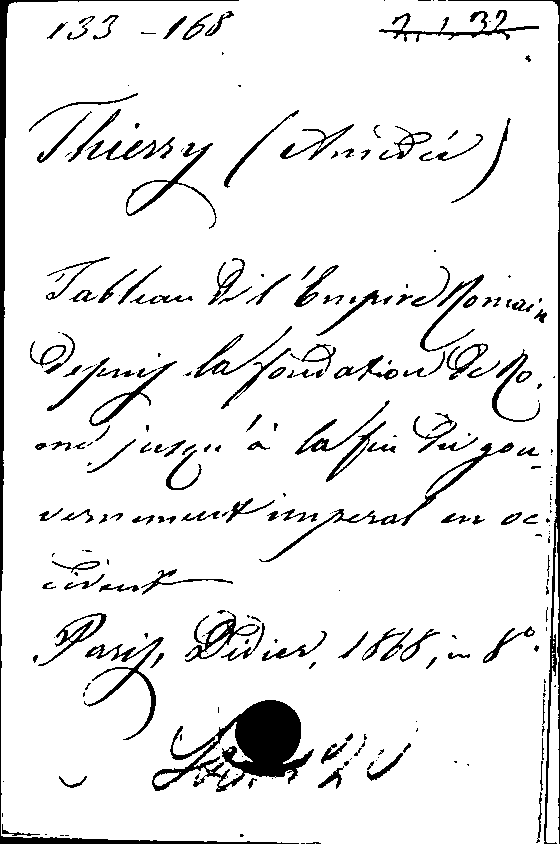 133 - 168 2. 1. 32
Thierry (Amédée)
Tableau de l'Empire Romain
depuis la fondation de Ro-
me jusqu'à la fin du gou-
vernement imperal en oc-
cident
Paris, Didier, 1868, in 8º.